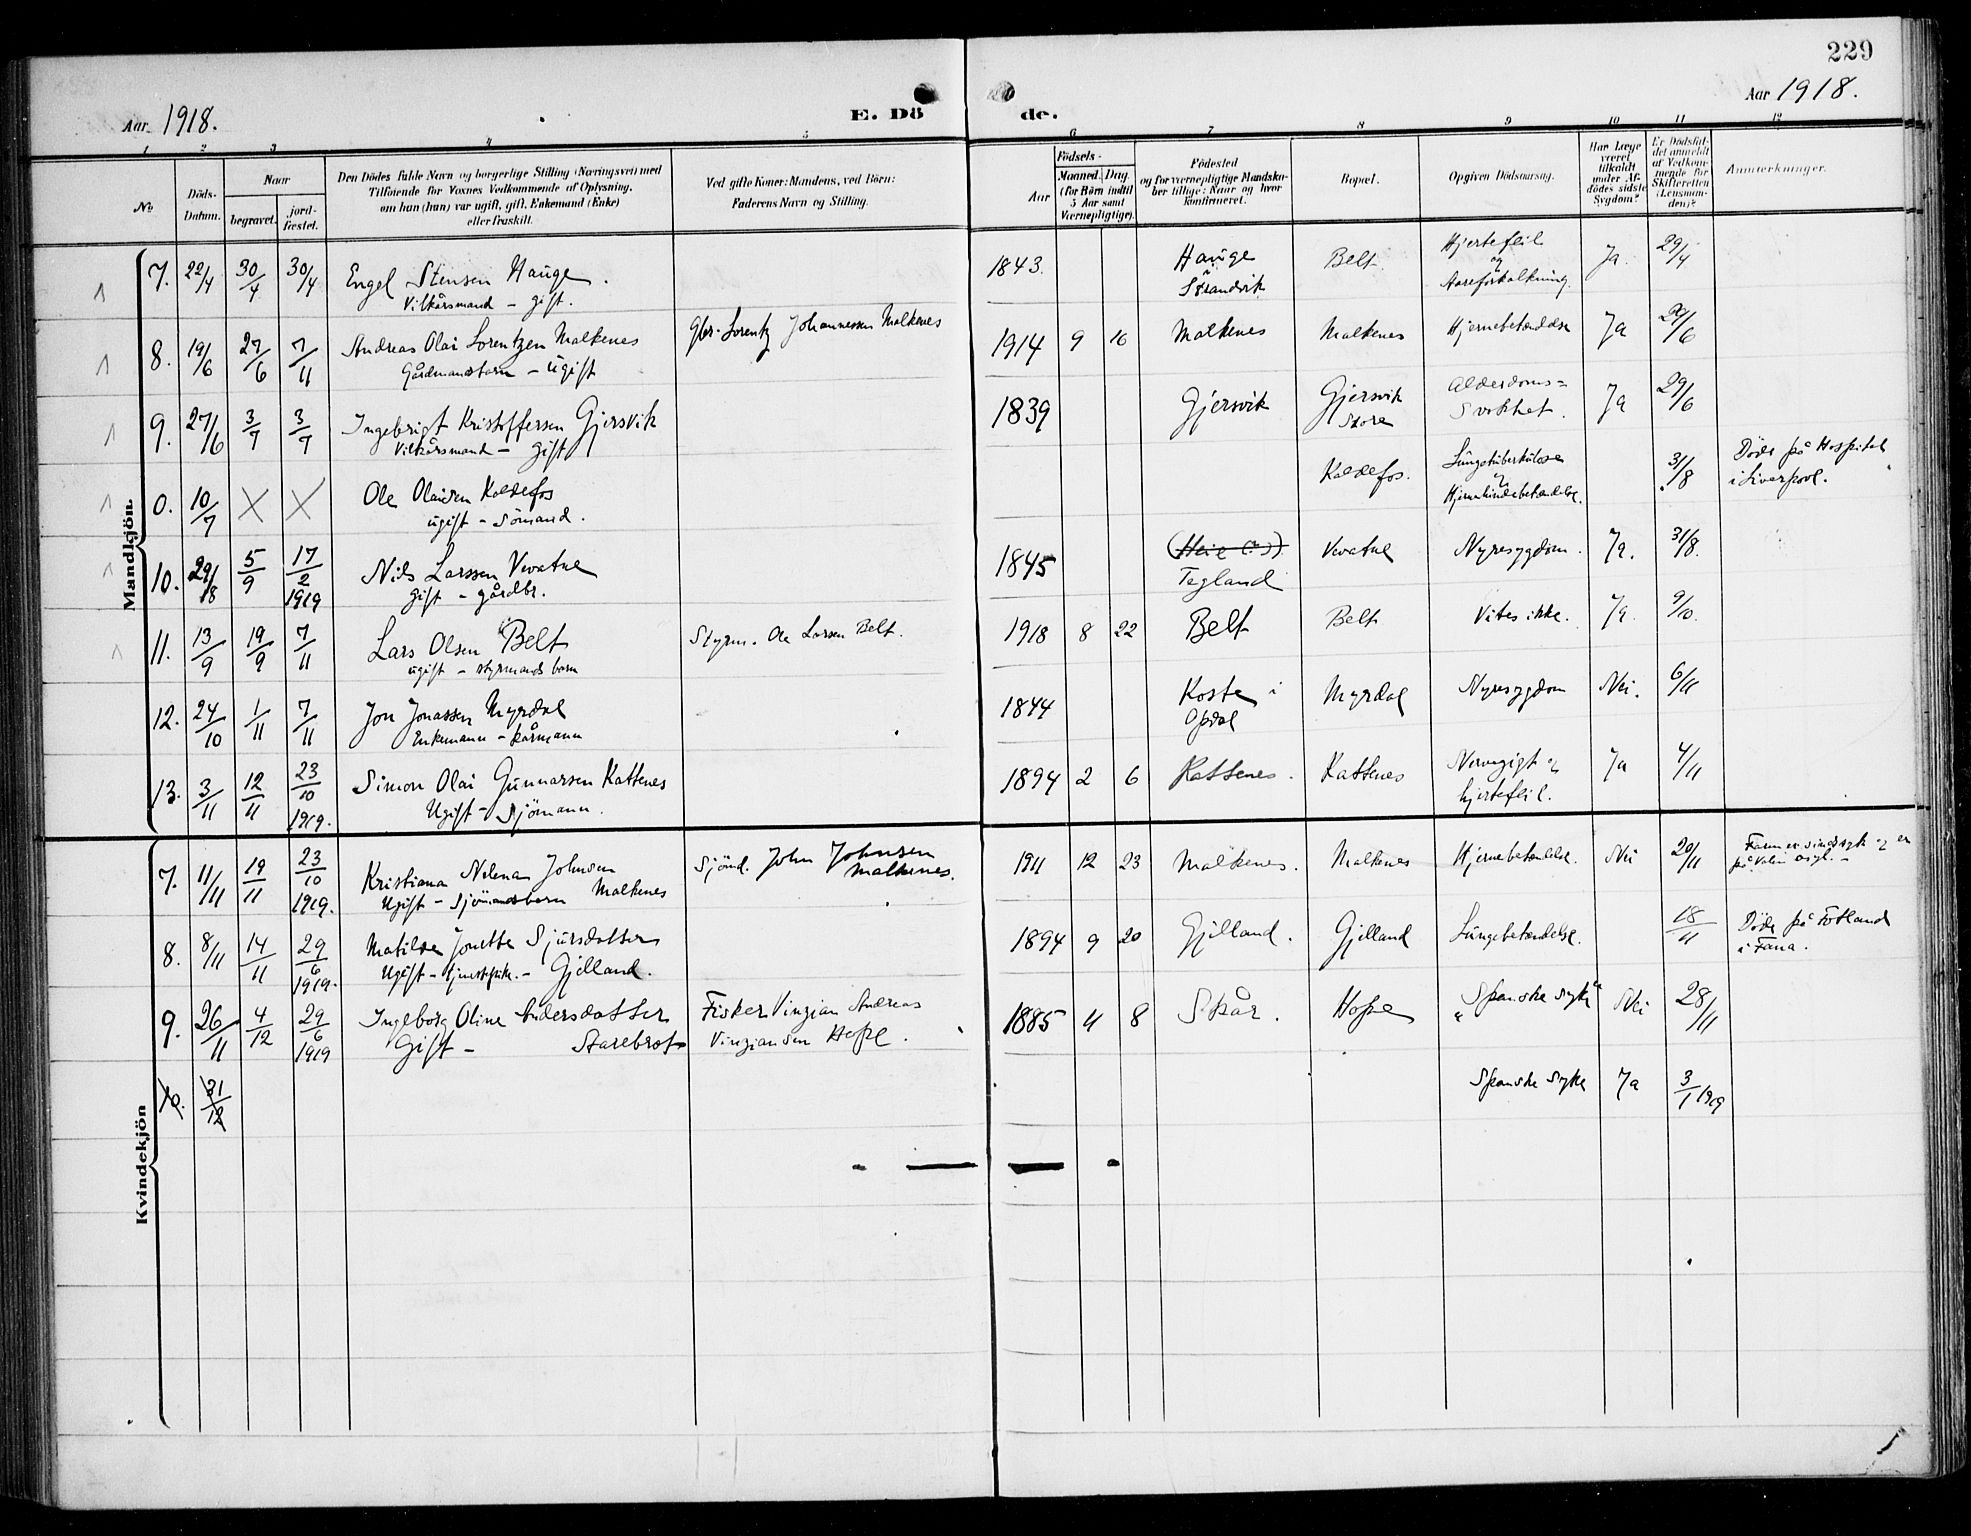 229
Aar 1918. E. Dö de. Aar 1918.
1 2 3 4 5 6 7 8 9 10 11 12
No
Döds-Datum.
Naar
begravet.
jord-fæstet.
Den Dödes fulde Navn og borgerlige Stilling (Næringsvei) med
Tilföiende for Voxnes Vedkommende af Oplysning,
om han (hun) var ugift, gift, Enkemand (Enke)
eller fraskilt.
Ved gifte Koner: Mandens, ved Börn:
Faderens Navn og Stilling.
Födsels-
Aar
Maaned. Dag.
(for Börn indtil
5 Aar samt
Værnepligtige).
Födested
og for værnepligtige Mandska-
ber tillige: Naar og hvor
konfirmeret.
Bopæl.
Opgiven Dödsaarsag.
Har Læge
været
tilkaldt
under Af-
dödes sidste
Sygdom?
Er Dödsfal-
det anmeldt
af Vedkom-
mende for
Skifteretten
(Lensman-
den)?
Anmærkninger.
Mandkjön.
7. 22/4 30/4 30/4 Engel Stensen Hauge. 1843. Hauge Belt. Hjertefeil Ja. 29/4
Vilkårsmand – gift. i Strandvik og Aareforkalkning.
8. 19/6 27/6 7/11 Andreas Olai Lorentzen Malkenes Gbr. Lorentz Johannessen Malkenes 1914 9 16 Malkenes Malkenes Hjernebetændelse Ja 29/6
Gårdmandsbarn – ugift
9. 27/6 3/7 3/7 Ingebrigt Kristoffersen Gjersvik 1839 Gjersvik Gjersvik Alderdoms= Ja 29/6
Vilkårsmand – gift Store Svakhet.
0. 10/7 X X Ole Olaisen Koldefos Koldefos. Lungetuberkulose 31/8 Döde på Hospital
ugift – Sömand. og Hjernehindebetændelse. i Liverpool.
10. 29/8 5/9 17/2 1919 Nils Larssen Vevatne 1845 (Heie (?)) Vevatne Nyresygdom. Ja. 31/8.
gift – gårdbr. Tegland
11. 13/9 19/9 7/11 Lars Olsen Belt Styrm. Ole Larsen Belt. 1918 8 22 Belt Belt Vites ikke. Ja. 9/10.
ugift – styrmands barn
12. 24/10 1/11 7/11 Jon Jonassen Myrdal 1844 Koste i Myrdal Nyresygdom Nei. 6/11
Enkemann – kårmann Opdal
13. 3/11 12/11 23/10 1919. Simon Olai Gunnarsen Kattenes 1894 2 6 Kattenes. Kattenes Nervegigt og Ja 4/11
Ugift – Sjömann. hjertefeil.
Kvindekjön
7. 11/11 19/11 23/10 1919. Kristiana Nelena Johnsen Sjömd. John Johnsen 1911 12 23 Malkenes. Malkenes Hjernebetændelse. Nei 20/11 Faren er sindssyk og er
Ugift – Sjömandsbarn Malkenes Malkenes. på Valen asyl. –
8. 8/11 14/11 29/6 1919. Matilde Jonetta Sjursdatter 1894 9 20 Gjelland. Gjelland Lungebetændelse. 18/11 Döde på Fotland
Ugift – tjenestepike. – Gjelland. i Fana.
9. 26/11 4/12 29/6 1919 Ingeborg Oline Andersdatter Fisker Vinzian Andreas 1885 4 8 Skår. Hope „Spanske syke“ Nei 28/11
Gift – Starebrot Vinziansen Hope.
10. 31/12 Spanske syke Ja 3/1 1919